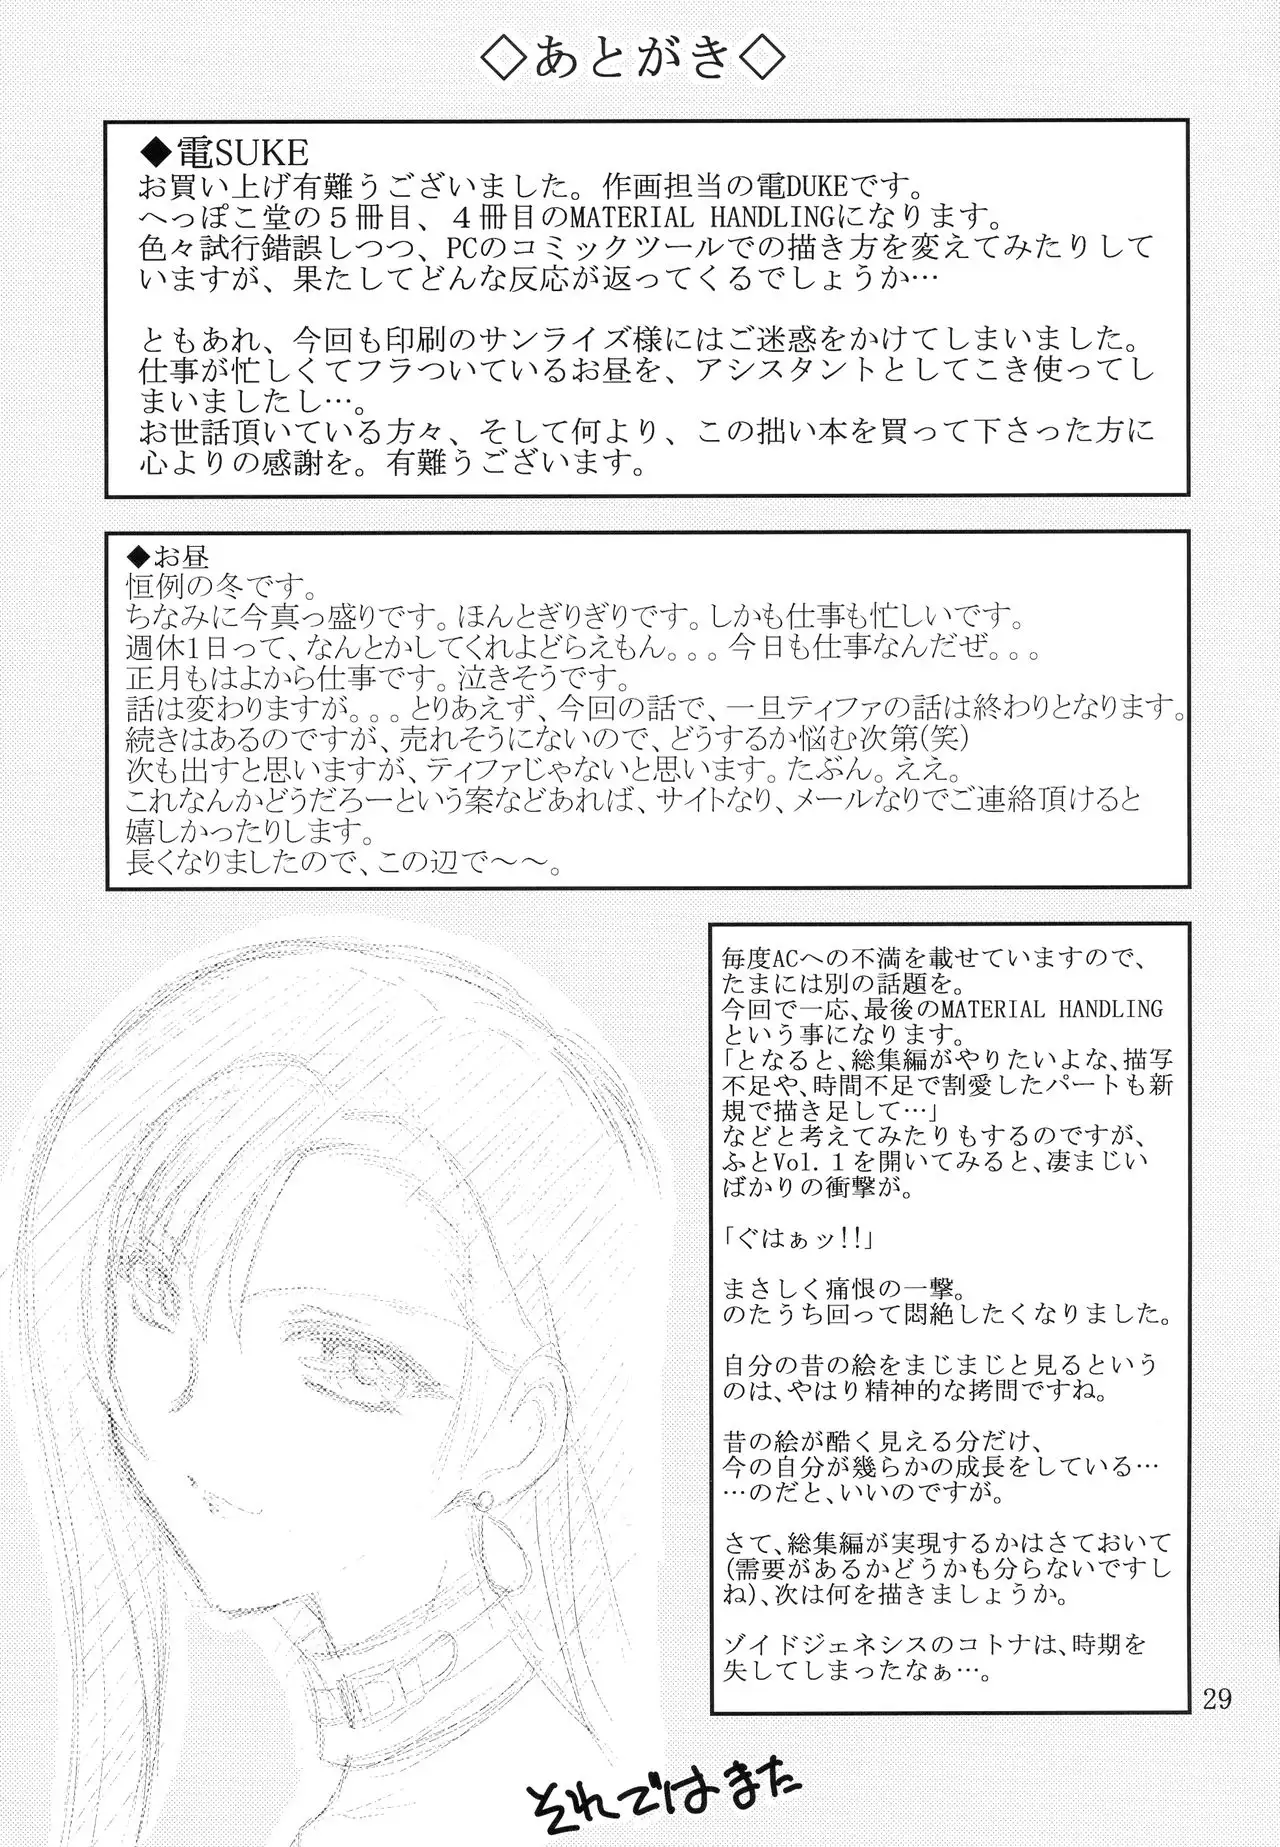 ◇あとがき◇
◆電SUKE
お買い上げ有難うございました。作画担当の電DUKEです。
へっぽこ堂の５冊目、４冊目のMATERIAL HANDLINGになります。
色々試行錯誤しつつ、PCのコミックツールでの描き方を変えてみたりして
いますが、果たしてどんな反応が返ってくるでしょうか…
ともあれ、今回も印刷のサンライズ様にはご迷惑をかけてしまいました。
仕事が忙しくてフラついているお昼を、アシスタントとしてこき使ってし
まいましたし…。
お世話頂いている方々、そして何より、この拙い本を買って下さった方に
心よりの感謝を。有難うございます。
◆お昼
恒例の冬です。
ちなみに今真っ盛りです。ほんとぎりぎりです。しかも仕事も忙しいです。
週休1日って、なんとかしてくれよどらえもん。。。今日も仕事なんだぜ。。。
正月もはよから仕事です。泣きそうです。
話は変わりますが。。。とりあえず、今回の話で、一旦ティファの話は終わりとなります。
続きはあるのですが、売れそうにないので、どうするか悩む次第(笑)
次も出すと思いますが、ティファじゃないと思います。たぶん。ええ。
これなんかどうだろーという案などあれば、サイトなり、メールなりでご連絡頂けると
嬉しかったりします。
長くなりましたので、この辺で～～。
毎度ACへの不満を載せていますので、
たまには別の話題を。
今回で一応、最後のMATERIAL HANDLING
という事になります。
「となると、総集編がやりたいよな、描写
不足や、時間不足で割愛したパートも新
規で描き足して…」
などと考えてみたりもするのですが、
ふとVol.１を開いてみると、凄まじい
ばかりの衝撃が。
「ぐはぁッ!!」
まさしく痛恨の一撃。
のたうち回って悶絶したくなりました。
自分の昔の絵をまじまじと見るという
のは、やはり精神的な拷問ですね。
昔の絵が酷く見える分だけ、
今の自分が幾らかの成長をしている…
…のだと、いいのですが。
さて、総集編が実現するかはさておいて
(需要があるかどうかも分らないですし
ね)、次は何を描きましょうか。
ゾイドジェネシスのコトナは、時期を
失してしまったなぁ…。
29
それではまた